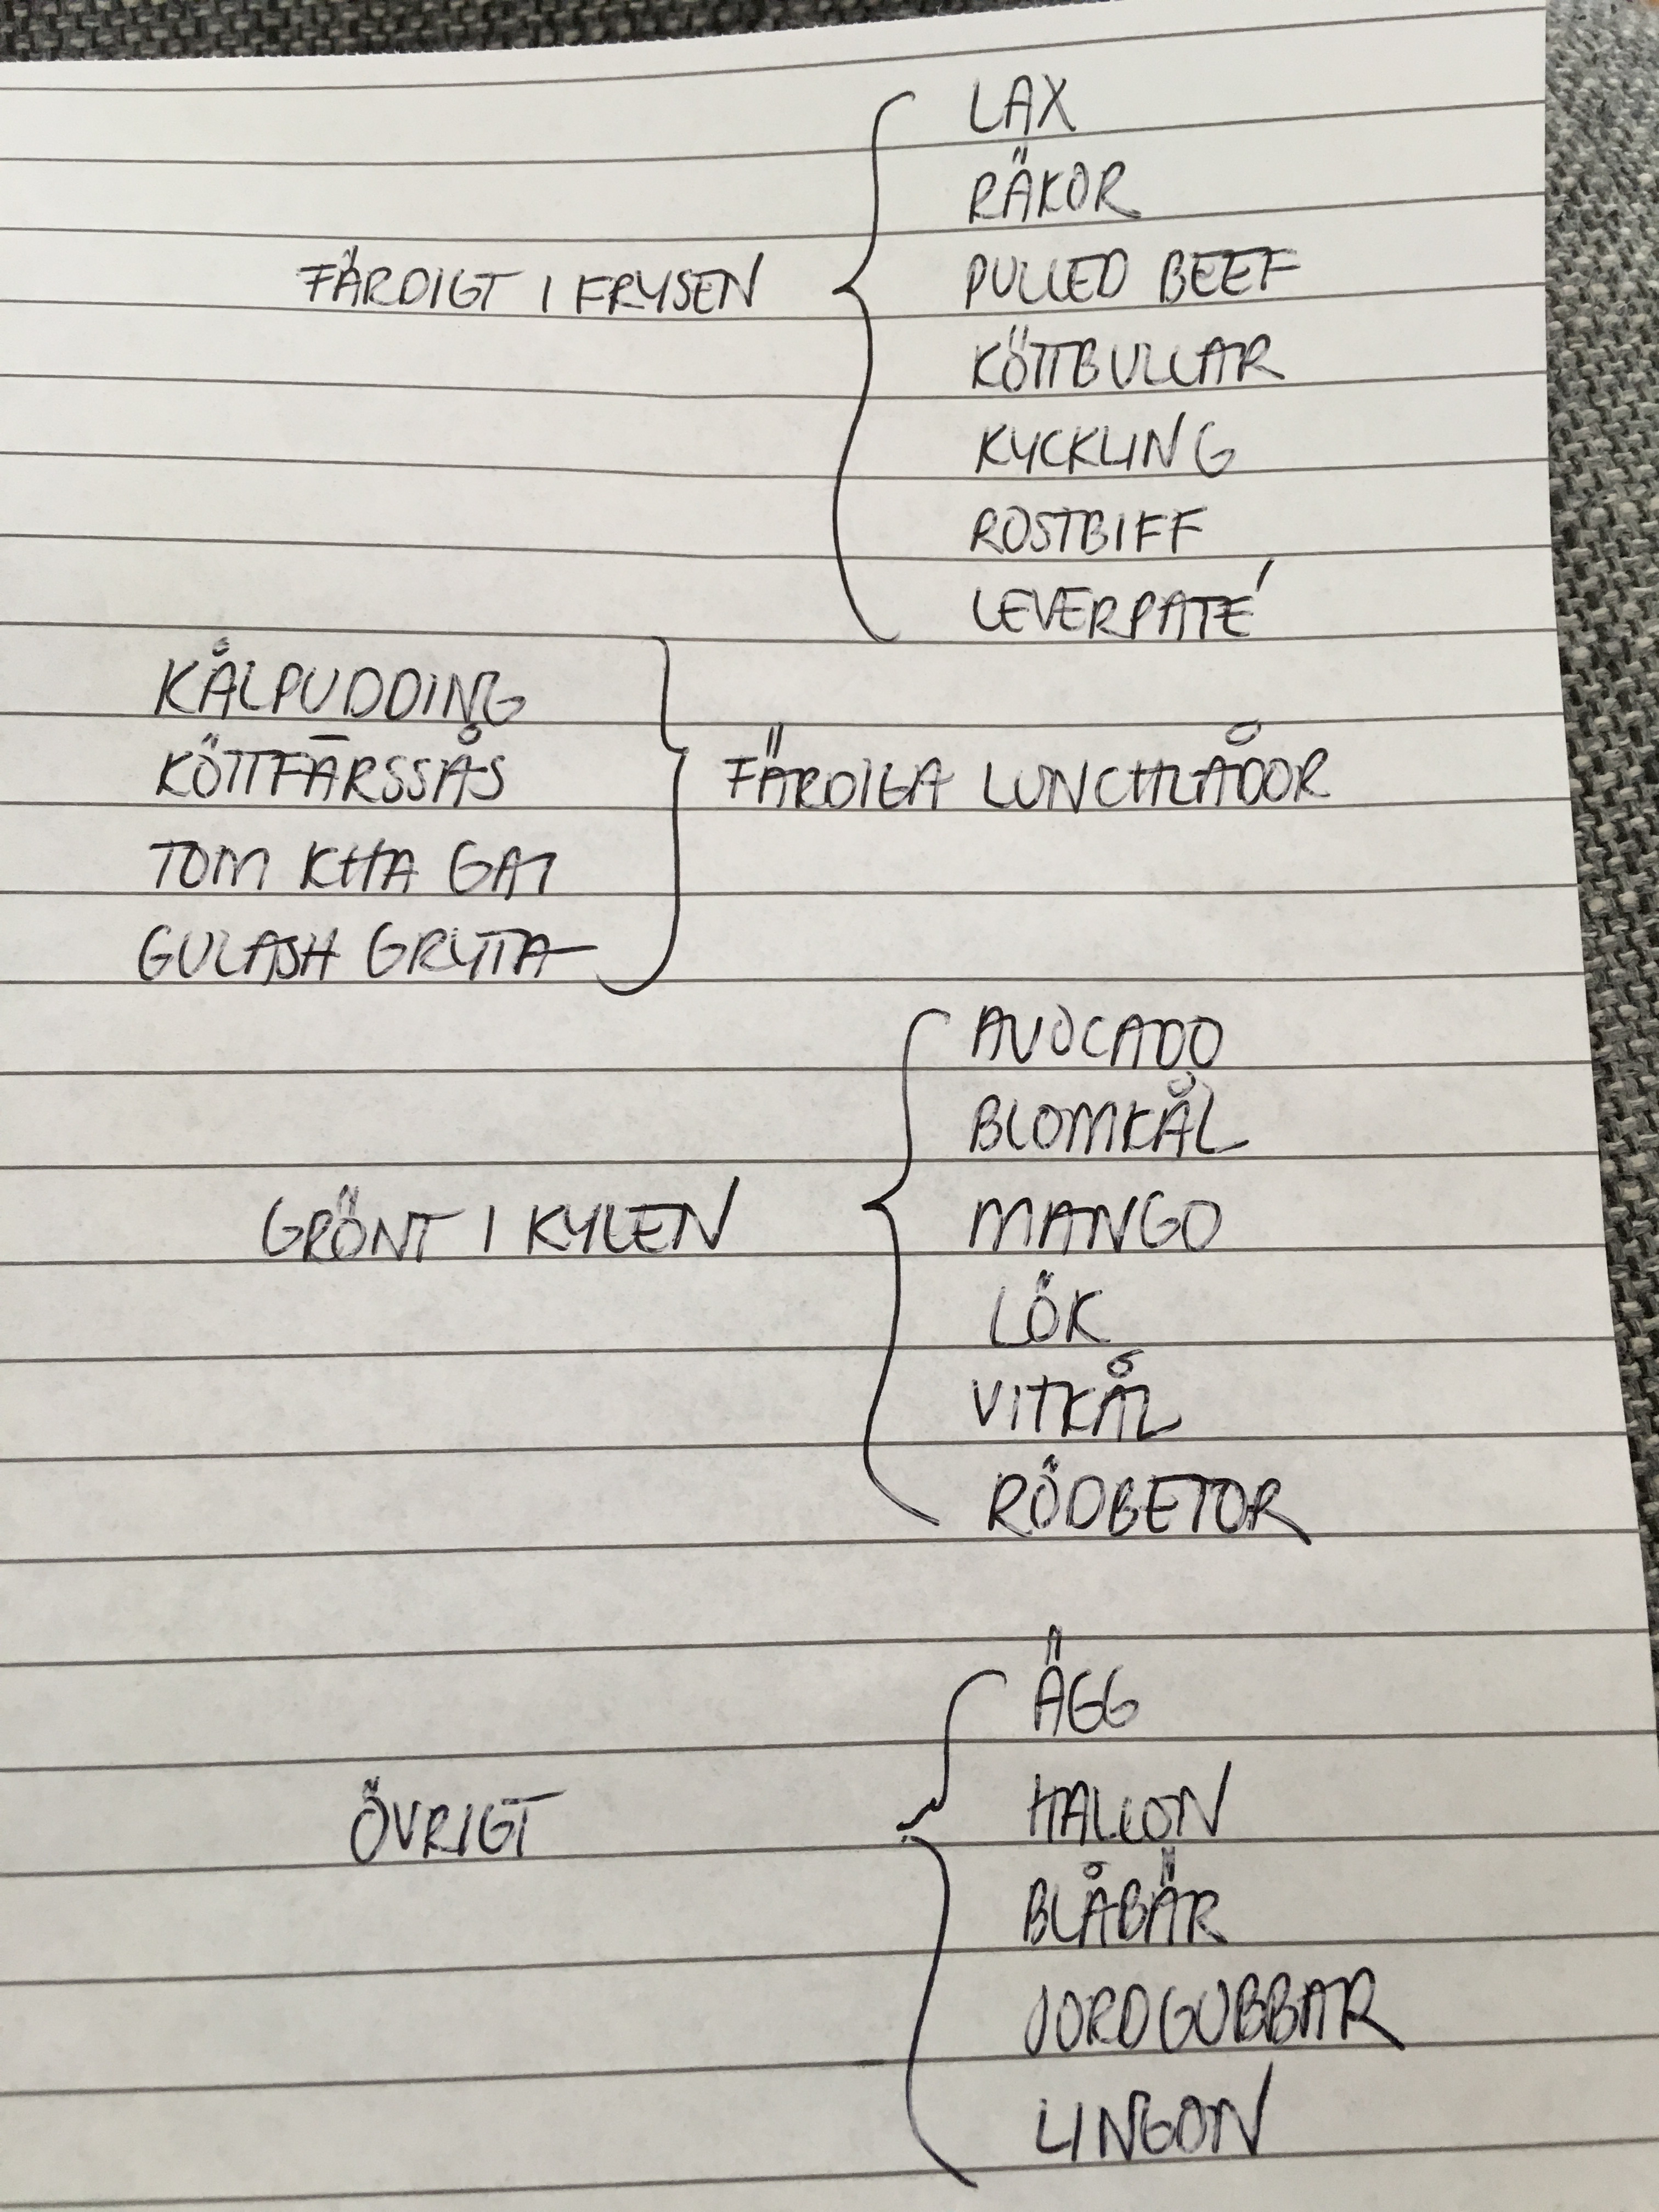 LAX
RÄKOR
FÄRDIGT I FRYSEN
PULLED BEEF
KÖTTBULLAR
KYCKLING
ROSTBIFF
LEVERPATÉ
KÅLPUDDING
KÖTTFÄRSSÅS
FÄRDIGA LUNCHLÅDOR
TOM KHA GAI
GULASH GRYTA
AVOCADO
BLOMKÅL
GRÖNT I KYLEN
MANGO
LÖK
VITKÅL
RÖDBETOR
ÄGG
ÖVRIGT
HALLON
BLÅBÄR
JORDGUBBAR
LINGON